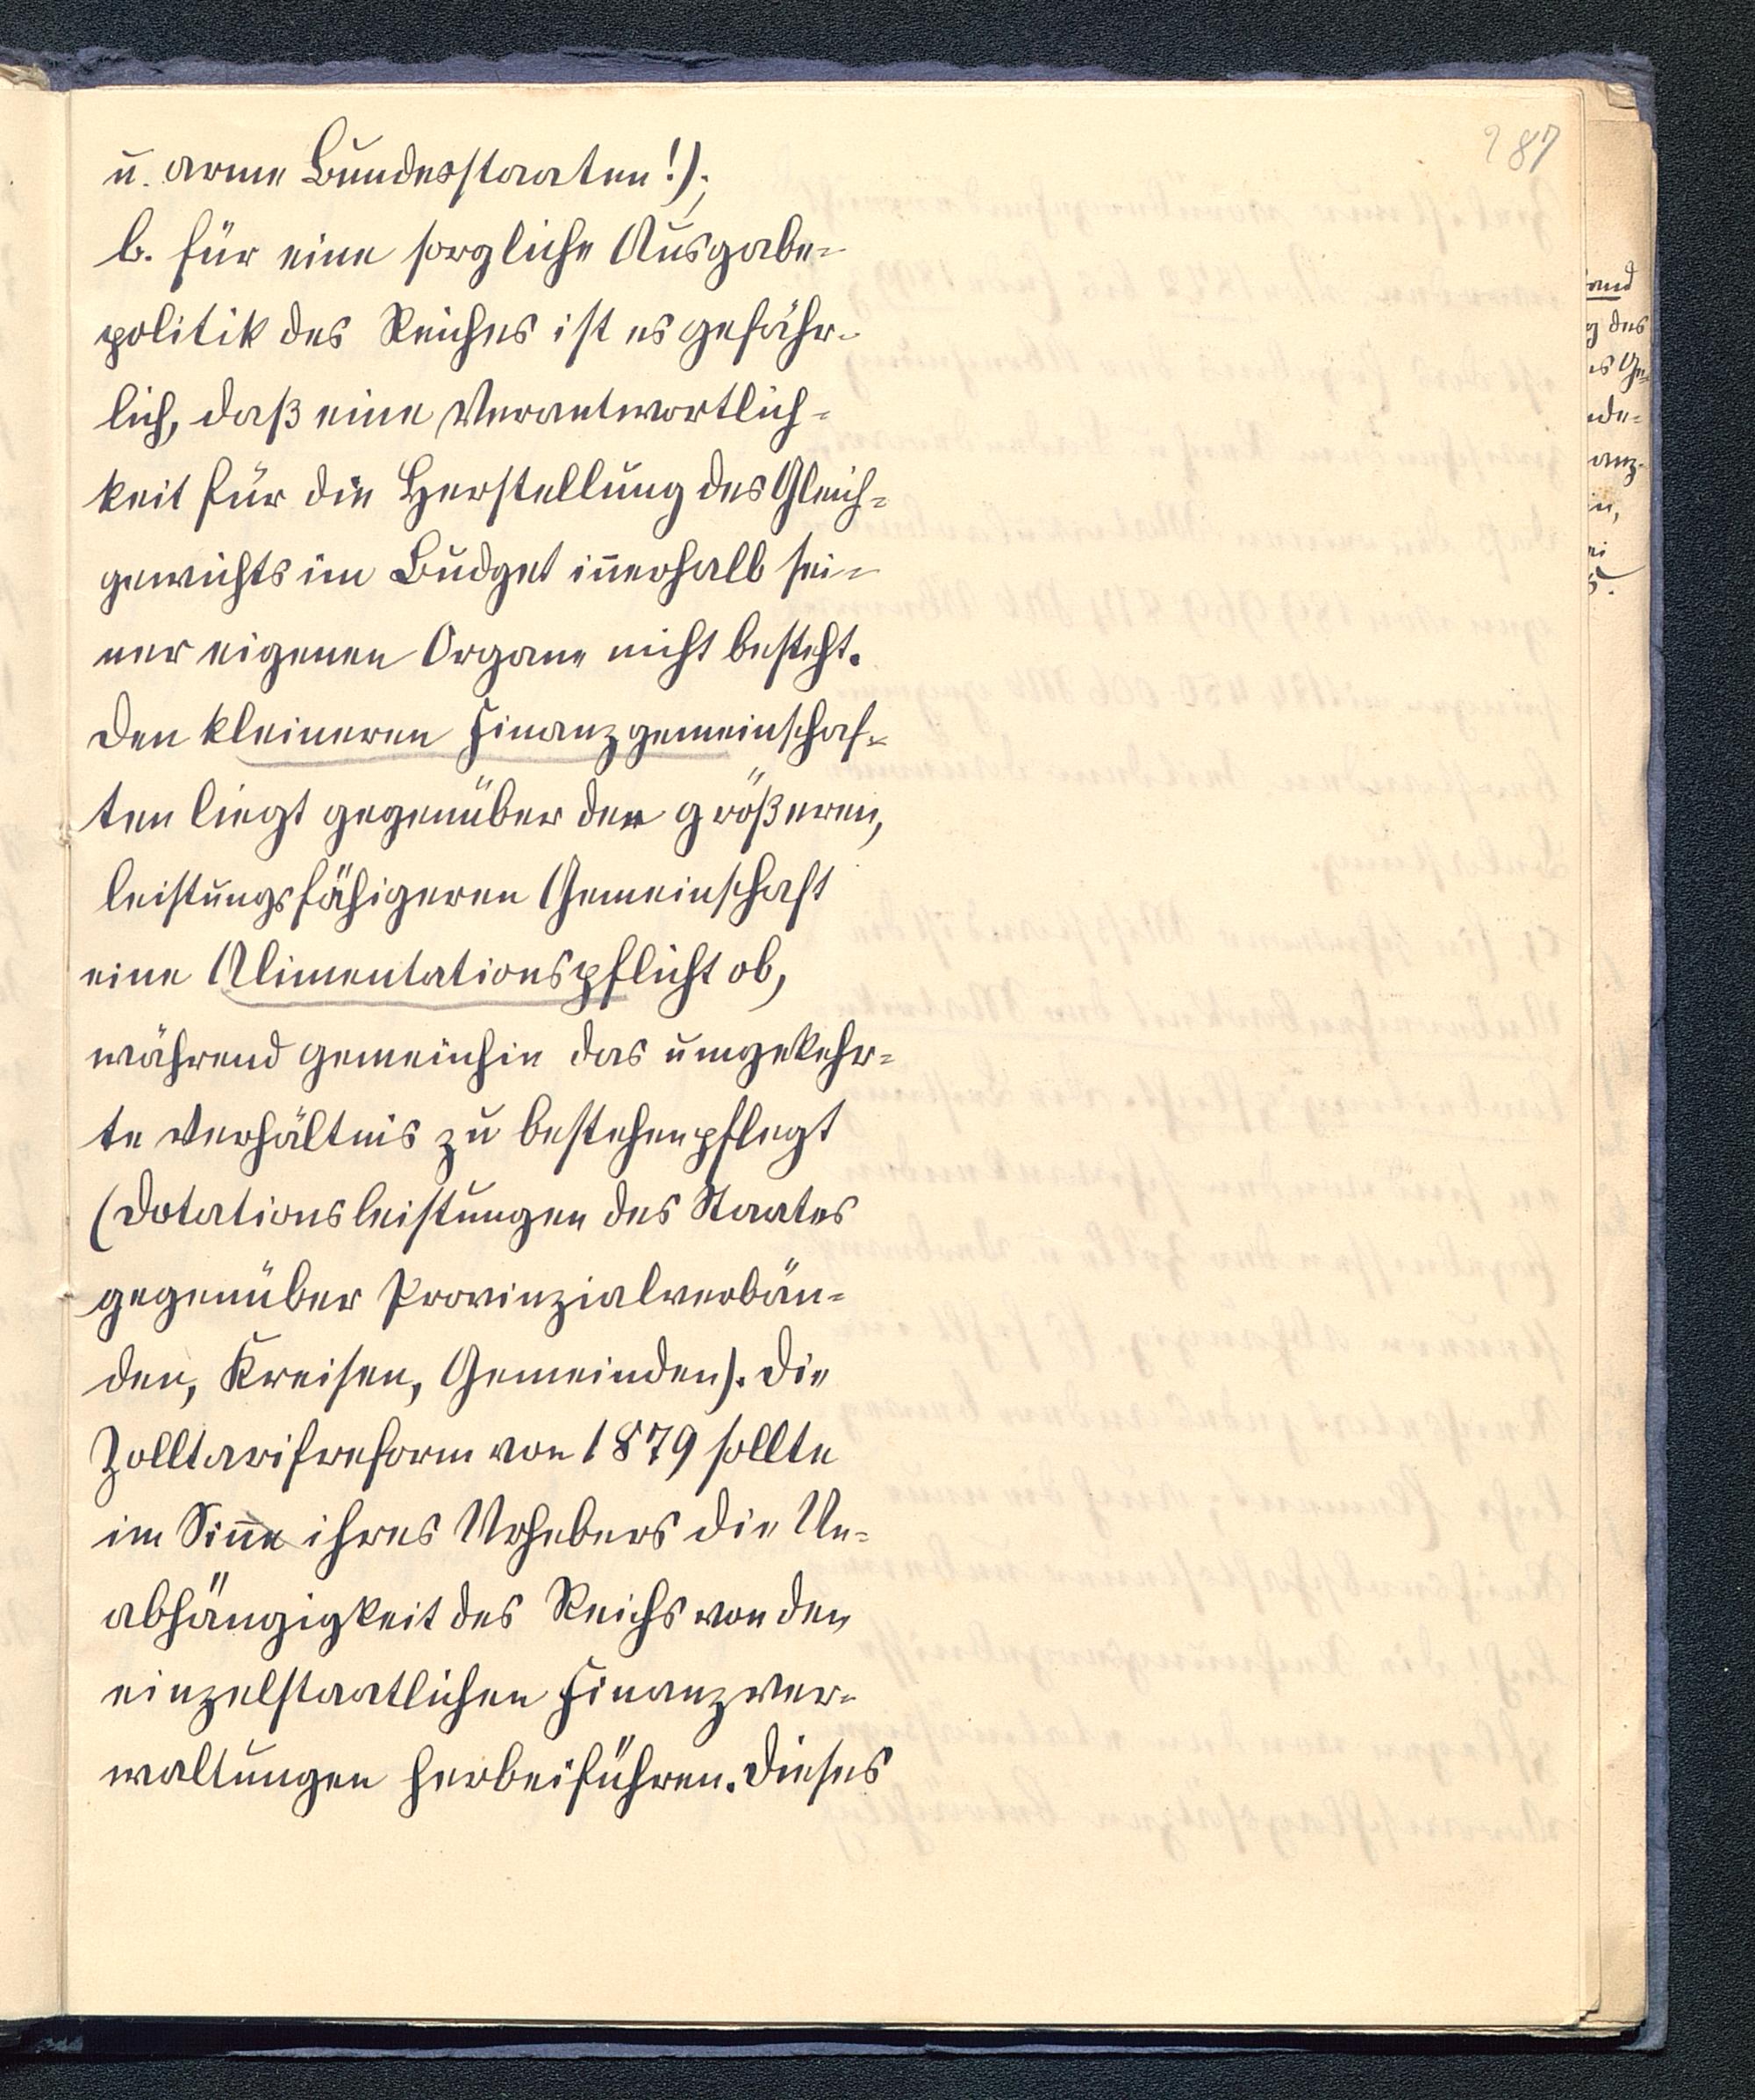 287
u. arme Bundesstaaten!);
b. für eine sorgliche Ausgabe-
politik des Reiches ist es gefähr-
lich, daß eine Verantwortlich-
keit für die Herstellung des Gleich-
gewichts im Budget in̄erhalb sei-
ner eigenen Organe nicht besteht.
Den kleineren Finanzgemeinschaf-
ten liegt gegenüber der größeren,
leistungsfähigeren Gemeinschaft
eine Alimentationspflicht ob,
während gemeinhin das umgekehr-
te Verhältnis zu bestehen pflegt
(Dotationsleistungen des Staates
gegenüber Provinzialverbän-
den, Kreisen, Gemeinden). Die
Zolltarifreform von 1879 sollte
im Sin̄e ihres Urhebers die Un-
abhängigkeit des Reichs von den
einzelstaatlichen Finanzver-
waltungen herbeiführen. Dieses